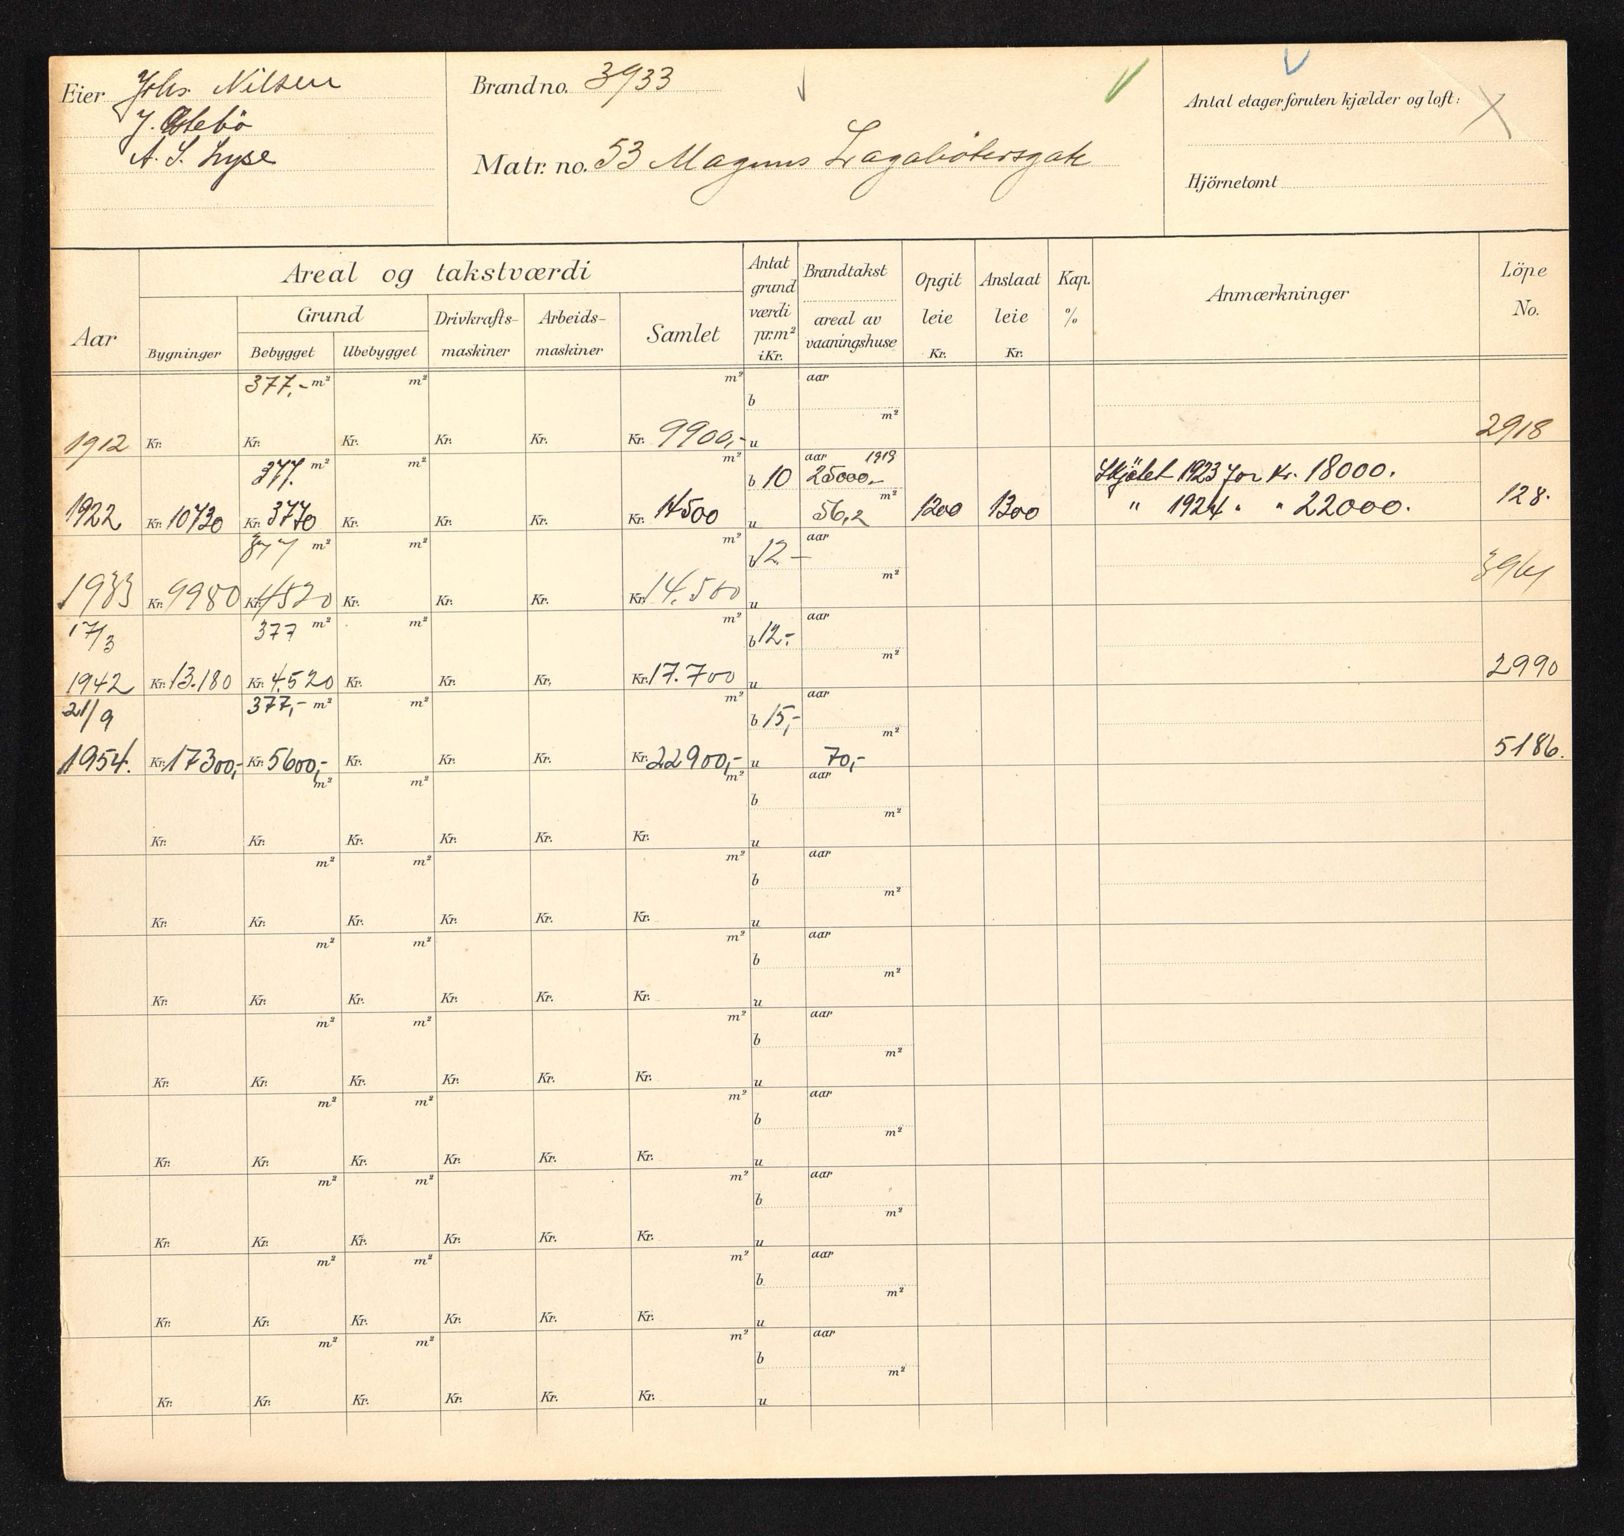 Eier Johs. Nilsen
J. Østebö
A. S. Lyse
Brand no. 3933
Matr. no. 53 Magnus Lagabötersgate
Antal etager foruten kjælder og loft:
Hjörnetomt
Aar
Areal og takstværdi
Bygninger
Grund
Bebygget Ubebygget
Drivkrafts-
maskiner
Arbeids-
maskiner
Samlet
Antat
grund
værdi
pr. m²
i Kr.
Brandtakst
areal av
vaaningshuse
Opgit
leie
Kr.
Anslaat
leie
Kr.
Kap.
%
Anmærkninger
Löpe
No.
377,- m² m² m² b aar
m²
1912 Kr. Kr. Kr. Kr. Kr. Kr. 9900,- u 2918
377. m² m² m² b 10 aar 1919 25000,- Skjötet 1923 for Kr. 18000.
1922 Kr. 10730 Kr. 3770 Kr. Kr. Kr. Kr. 14500 u 56,2 m² 1200 1300 " 1924 " " 22000. 128.
377 m² m² m² b 12.- aar
m²
1933 Kr. 9980 Kr. 4520 Kr. Kr. Kr. Kr. 14.500 u 3961
17/3 377 m² m² m² b 12.- aar
m²
1942 Kr. 13.180 Kr. 4.520 Kr. Kr. Kr. Kr. 17.700 u 2990
21/9 377,- m² m² m² b 15,- aar
m²
1954. Kr. 17300,- Kr. 5600,- Kr. Kr. Kr. Kr. 22900,- u 70,- 5186.
m² m² m² b aar
m²
Kr. Kr. Kr. Kr. Kr. Kr. u
m² m² m² b aar
m²
Kr. Kr. Kr. Kr. Kr. Kr. u
m² m² m² b aar
m²
Kr. Kr. Kr. Kr. Kr. Kr. u
m² m² m² b aar
m²
Kr. Kr. Kr. Kr. Kr. Kr. u
m² m² m² b aar
m²
Kr. Kr. Kr. Kr. Kr. Kr. u
m² m² m² b aar
m²
Kr. Kr. Kr. Kr. Kr. Kr. u
m² m² m² b aar
m²
Kr. Kr. Kr. Kr. Kr. Kr. u
m² m² m² b aar
m²
Kr. Kr. Kr. Kr. Kr. Kr. u